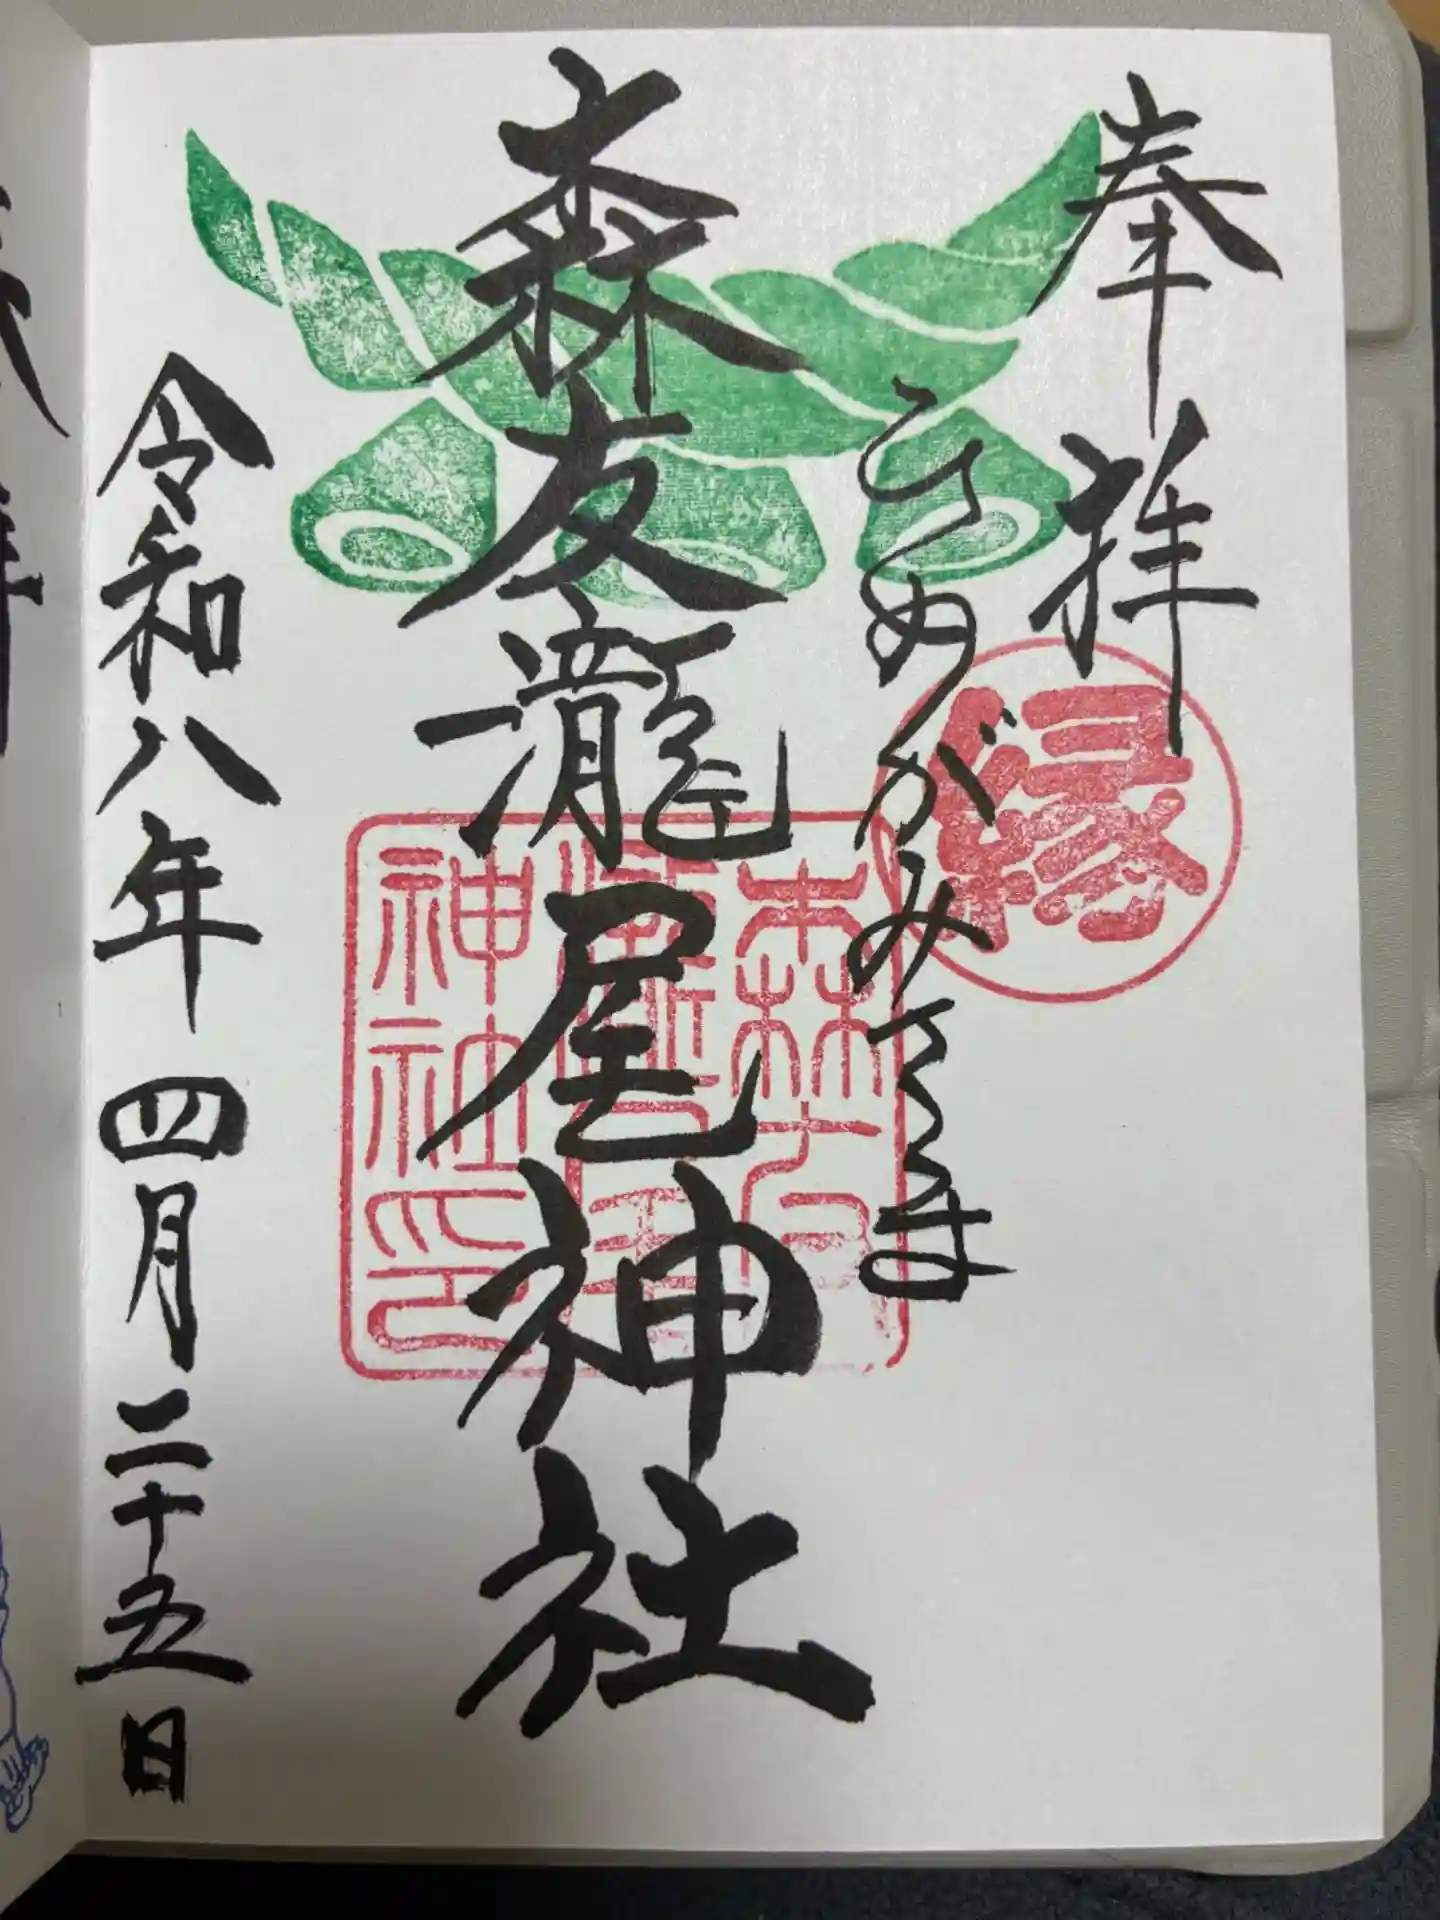 奉拝
縁
ひめがみさま
森友瀧尾神社
森友
神社印
令和八年四月二十五日